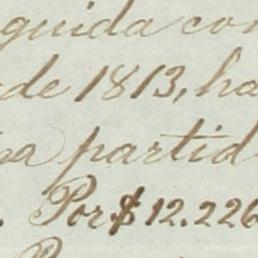 guida con
de 1813, ha
partid
Por $ 12.226